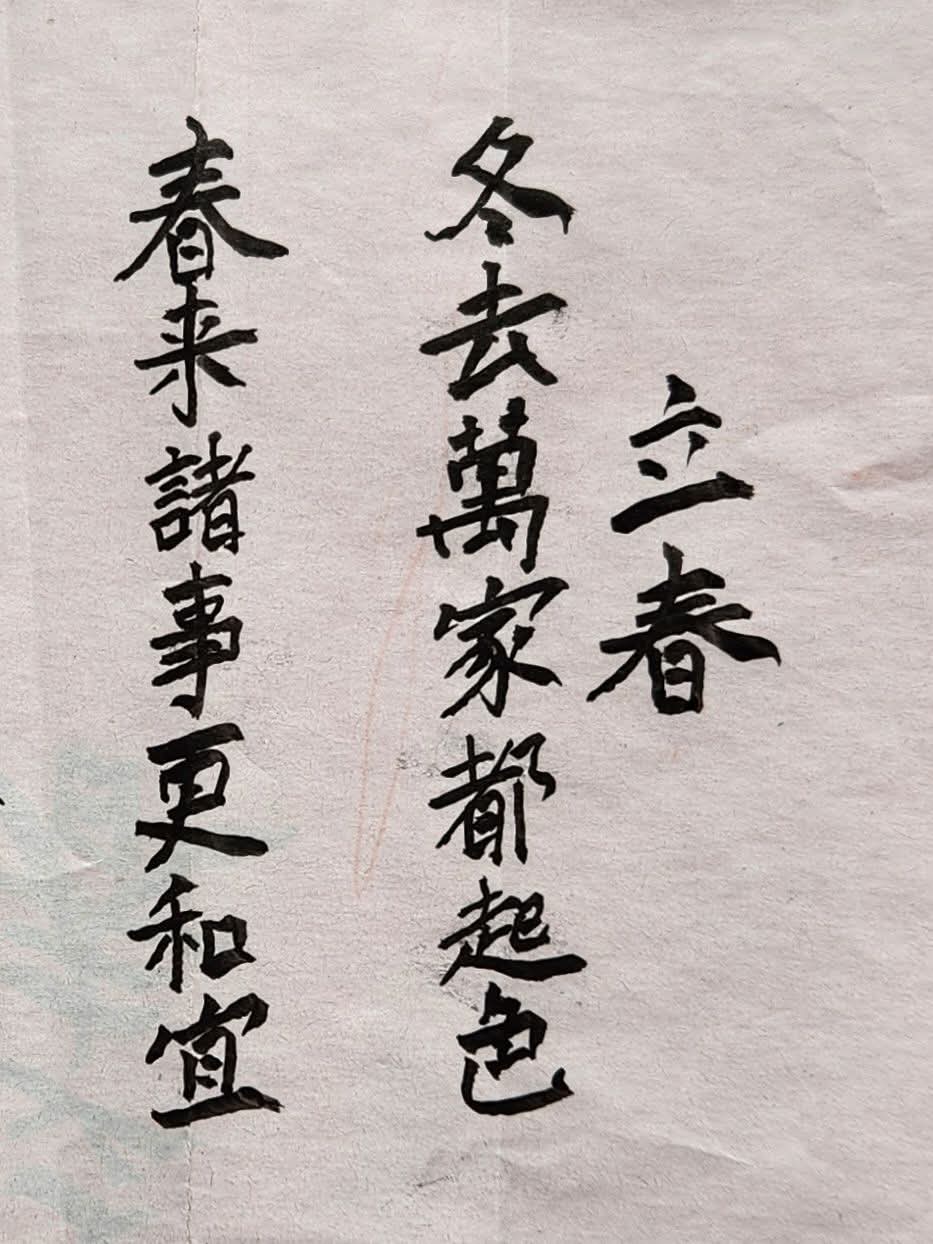 立春
冬去萬家都起色
春来諸事更和宜